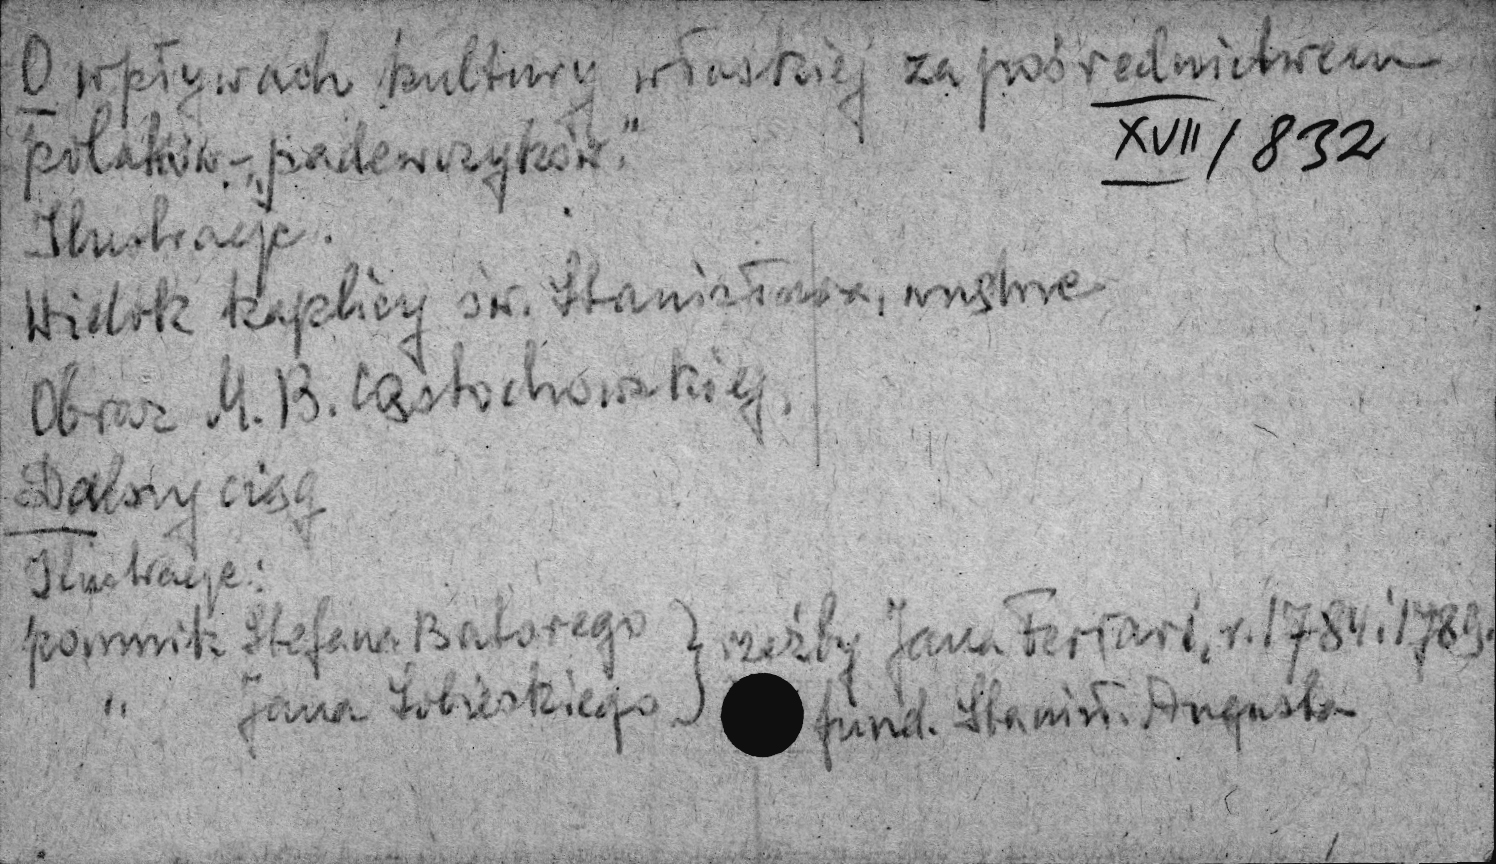 O wpływach kultury włoskiej za pośrednictwem
XVII / 832
polaków - „padewczyków."
Ilustracje.
Widok kaplicy św. Stanisława, wnętrze
Obraz M. B. Częstochowskiej.
Dalszy ciąg
Ilustracje:
pomnik Stefana Batorego } rzeźby Jana Ferrari, r. 1784 i 1789.
" Jana Sobieskiego } fund. Stanisł. Augusta